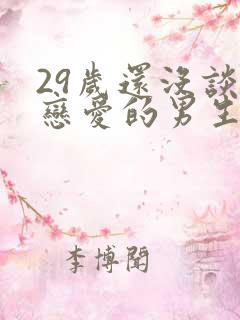 29歲還沒談
戀愛的男生
李博聞